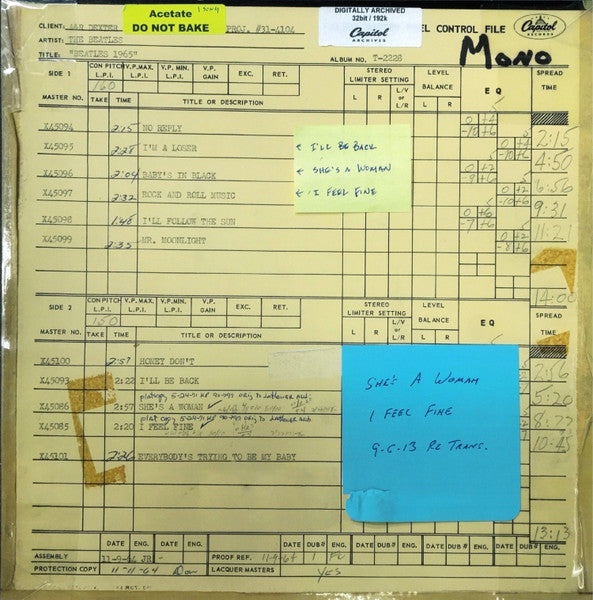 Acetate
DO NOT BAKE
DIGITALLY ARCHIVED
32bit / 192k
Capitol
ARCHIVES
CLIENT: DEXTER PROJ. #31-4104 CONTROL FILE
Capitol
RECORDS
ARTIST: THE BEATLES
MONO
TITLE: "BEATLES 1965" ALBUM NO. T-2228
SIDE 1 CON PITCH L.P.I. V.P. MAX. L.P.I. V.P. MIN. L.P.I. V.P. GAIN EXC. RET. STEREO LIMITER SETTING LEVEL BALANCE EQ SPREAD TIME
160 L R L/V or L/R L R
MASTER NO. TAKE TIME TITLE OR DESCRIPTION
X45094 2:15 NO REPLY 0 +4 -10 +6 2:15
X45095 2:28 I'M A LOSER 0 +4 -10 +6 4:50
X45096 2:04 BABY'S IN BLACK 0 +2 -8 +6 6:56
X45097 2:32 ROCK AND ROLL MUSIC 0 +2 -10 +6 9:31
X45098 1:46 I'LL FOLLOW THE SUN 0 +6 -7 +6 11:21
X45099 2:35 MR. MOONLIGHT 0 +2 -8 +6
14:00
← I'LL BE BACK
← SHE'S A WOMAN
← I FEEL FINE
SIDE 2 CON PITCH L.P.I. V.P. MAX. L.P.I. V.P. MIN. L.P.I. V.P. GAIN EXC. RET. STEREO LIMITER SETTING LEVEL BALANCE EQ SPREAD TIME
150 L R L/V or L/R L R
MASTER NO. TAKE TIME TITLE OR DESCRIPTION
X45100 2:57 HONEY DON'T 2:56
X45093 2:22 I'LL BE BACK 5:20
X45086 2:57 SHE'S A WOMAN ✓ 8:22
X45085 2:20 I FEEL FINE ✓ 10:45
X45101 2:26 EVERYBODY'S TRYING TO BE MY BABY
13:13
SHE'S A WOMAN
I FEEL FINE
9-6-13 RE TRANS.
DATE ENG. DATE ENG. DATE ENG. DATE DUB# ENG. DATE DUB# ENG. DATE DUB# ENG. DATE DUB# ENG.
ASSEMBLY 11-9-64 JR - PROOF REF. 11-9-64 1
PROTECTION COPY 11-11-64 LACQUER MASTERS YES